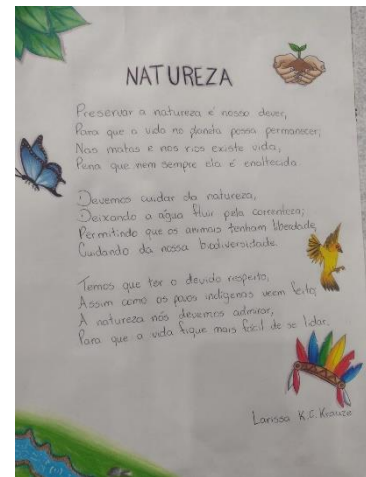 NATUREZA
Preservar a natureza é nosso dever,
Para que a vida no planeta possa permanecer;
Nas matas e nos rios existe vida,
Pena que nem sempre ela é enaltecida.
Devemos cuidar da natureza,
Deixando a água fluir pela correnteza;
Permitindo que os animais tenham liberdade,
Cuidando da nossa biodiversidade.
Temos que ter o devido respeito,
Assim como os povos indígenas veem feito,
A natureza nós devemos admirar,
Para que a vida fique mais fácil de se lidar.
Larissa K.C. Krauze